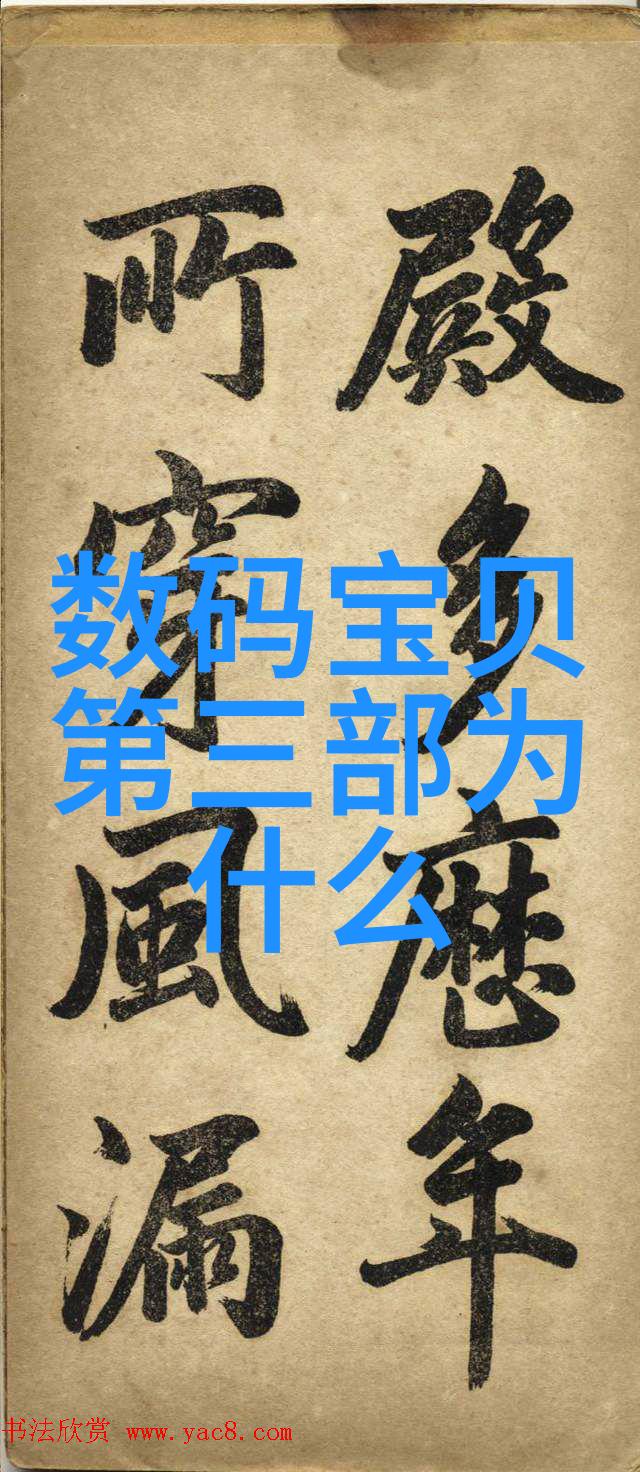 殿多歷年
所穿風漏
数码宝贝
第三部为
什么
书法欣赏 www.yac8.com